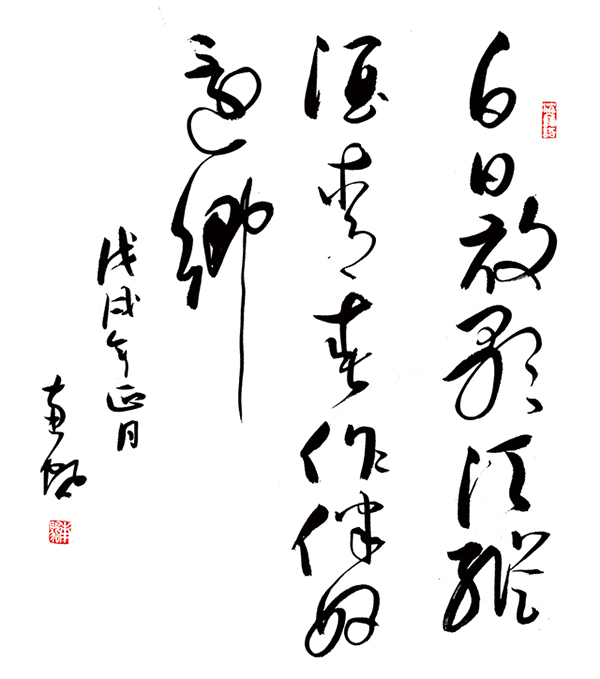 白日放歌須縱
酒青春作伴好
還鄉
戊戌年正月